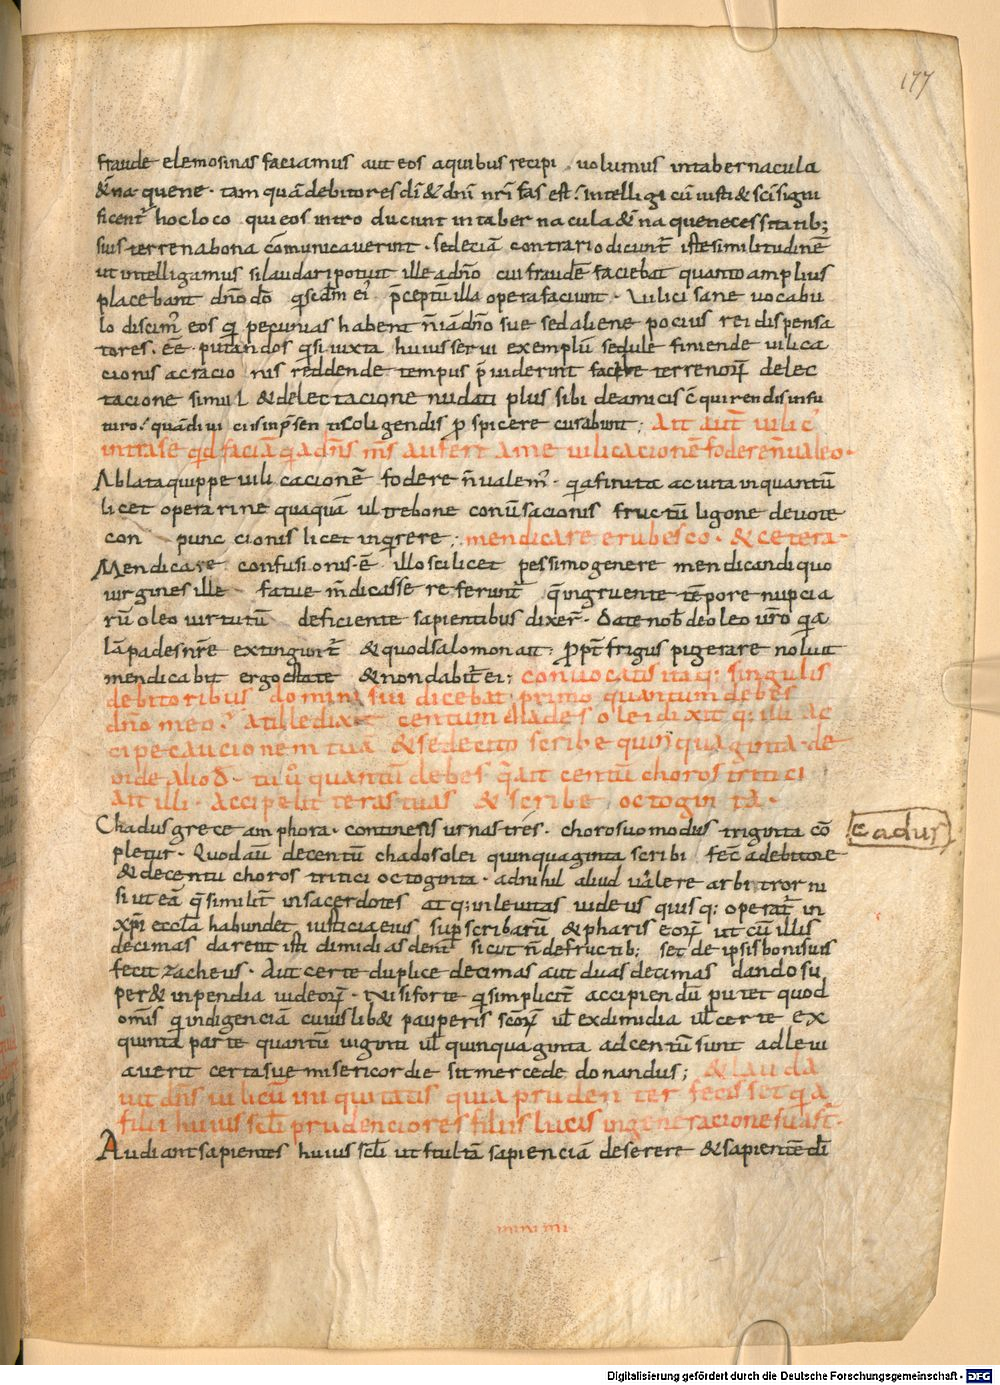 177
fraude elemosinas faciamus aut eos a quibus recipi volumus in tabernacula
&̄na quene · tam quā debitores dī & dn̄i nr̄i fas est · Intelligi cū iusti & sc̄i signi
ficent̄ hoc loco qui eos intro ducunt in taber na cula &̄na que necessitatib;
suis terrena bona cōmunicaverint · sed eciā contrario dicunt̄ iste similitudinē
ut intelligamus si laudari potuit ille a dn̄o cui fraudē faciebat quanto amplius
placebant dn̄o dō q̄ scdm̄ ei' p̄ceptū illa opera faciunt · Vilici sane vocabu
lo discim' eos qui pecunias habent n̄ iā dn̄o sue sed aliene pocius rei dispensa
tores · eē · putandos q̄si iuxta huius servi exemplū sedule finiende vilica
cionis ac racio nis reddende tempus p̄viderint facile terrenorum delec
tacione simul & delectacione nudati plus sibi de amicis c̄quirendis in fu
turo quā diviciis in p̄sen ti colligendis p̄spicere curabunt; Ait aut̄ vilic'
intra se qd faciā q̄a dn̄s m̄s aufert a me vilicacionē fodere n̄ valeo ·
Ablata quippe vili cacionē fodere n̄ valem' · q̄a finita ac vita in quantū
licet operari ne quaquā ul trebone conūsacionis fructū ligone devote
con punc cionis licet inq̄rere; mendicare erubesco · & cetera ·
Mendicare confusionis · ē · illo scilicet pessimo genere mendicandi quo
virgines ille fatue m̄dicasse referunt̄ q̄ ingruente tēpore nupcia
rū oleo virtutū deficiente sapientibus dixer̄ · Date nob̄ de oleo vr̄o q̄a
lāpades nr̄e extingunt̄ & quod salomon ait · p̄pt̄ frigus piger arare noluit
mendicabit ergo estate & non dabit̄ ei; convocatis itaq; singulis
debitoribus domina sui dicebat primo quantum debes
dn̄o meo · at ille dixit centum chades olei dixit q; illi ac
cipe caucionem tuā & sede cito scribe quinquaginta · de
inde alio d̄ · tu ū quantū debes q̄ ait centū choros tritici
ait illi · accipe litteras tuas & scribe octoginta ·
Chadus grece amphora · continens urnas tres · chorus vo modus triginta cō
cadus
pletur · Quod aū de centū chados olei quinquaginta scribi fec̄ a debitore
& de centū choros tritici octoginta · ad nihil aliud valere arbitror ni
si ut eā q̄ similit̄ in sacerdotes atq; in levitas iudeus quisq; operat̄ in
xp̄i ecc̄la habundet iusticia eius sup scribarū & phariseorum ut cū illis
decimas darent isti dimidias dent̄ sicut n̄ de fructib; set de ipsis bonis suis
fecit zacheus · Aut certe duplice decimas aut duas decimas dando su
per& inpendia iudeorum · Nisi forte q̄ simplicit̄ accipiendū putet quod
om̄is q̄ indigenciā cuiuslib& pauperis sc̄orum ul̄ ex dimidia ul̄ certe ex
quinta parte quantū viginti ul̄ quinquaginta ad centū sunt adlevi
averit certa sue misericordie sit mercede donandus; & lauda
vit dn̄s vilicū iniquitatis quia prudenter fecisset q̄a
filii huius scl̄i prudenciores filiis lucis in generacione sua s̄t ·
Audiant sapientes huius scl̄i ut stultā sapienciā deserere & sapientē dī
Digitalisierung gefördert durch die Deutsche Forschungsgemeinschaft - DFG